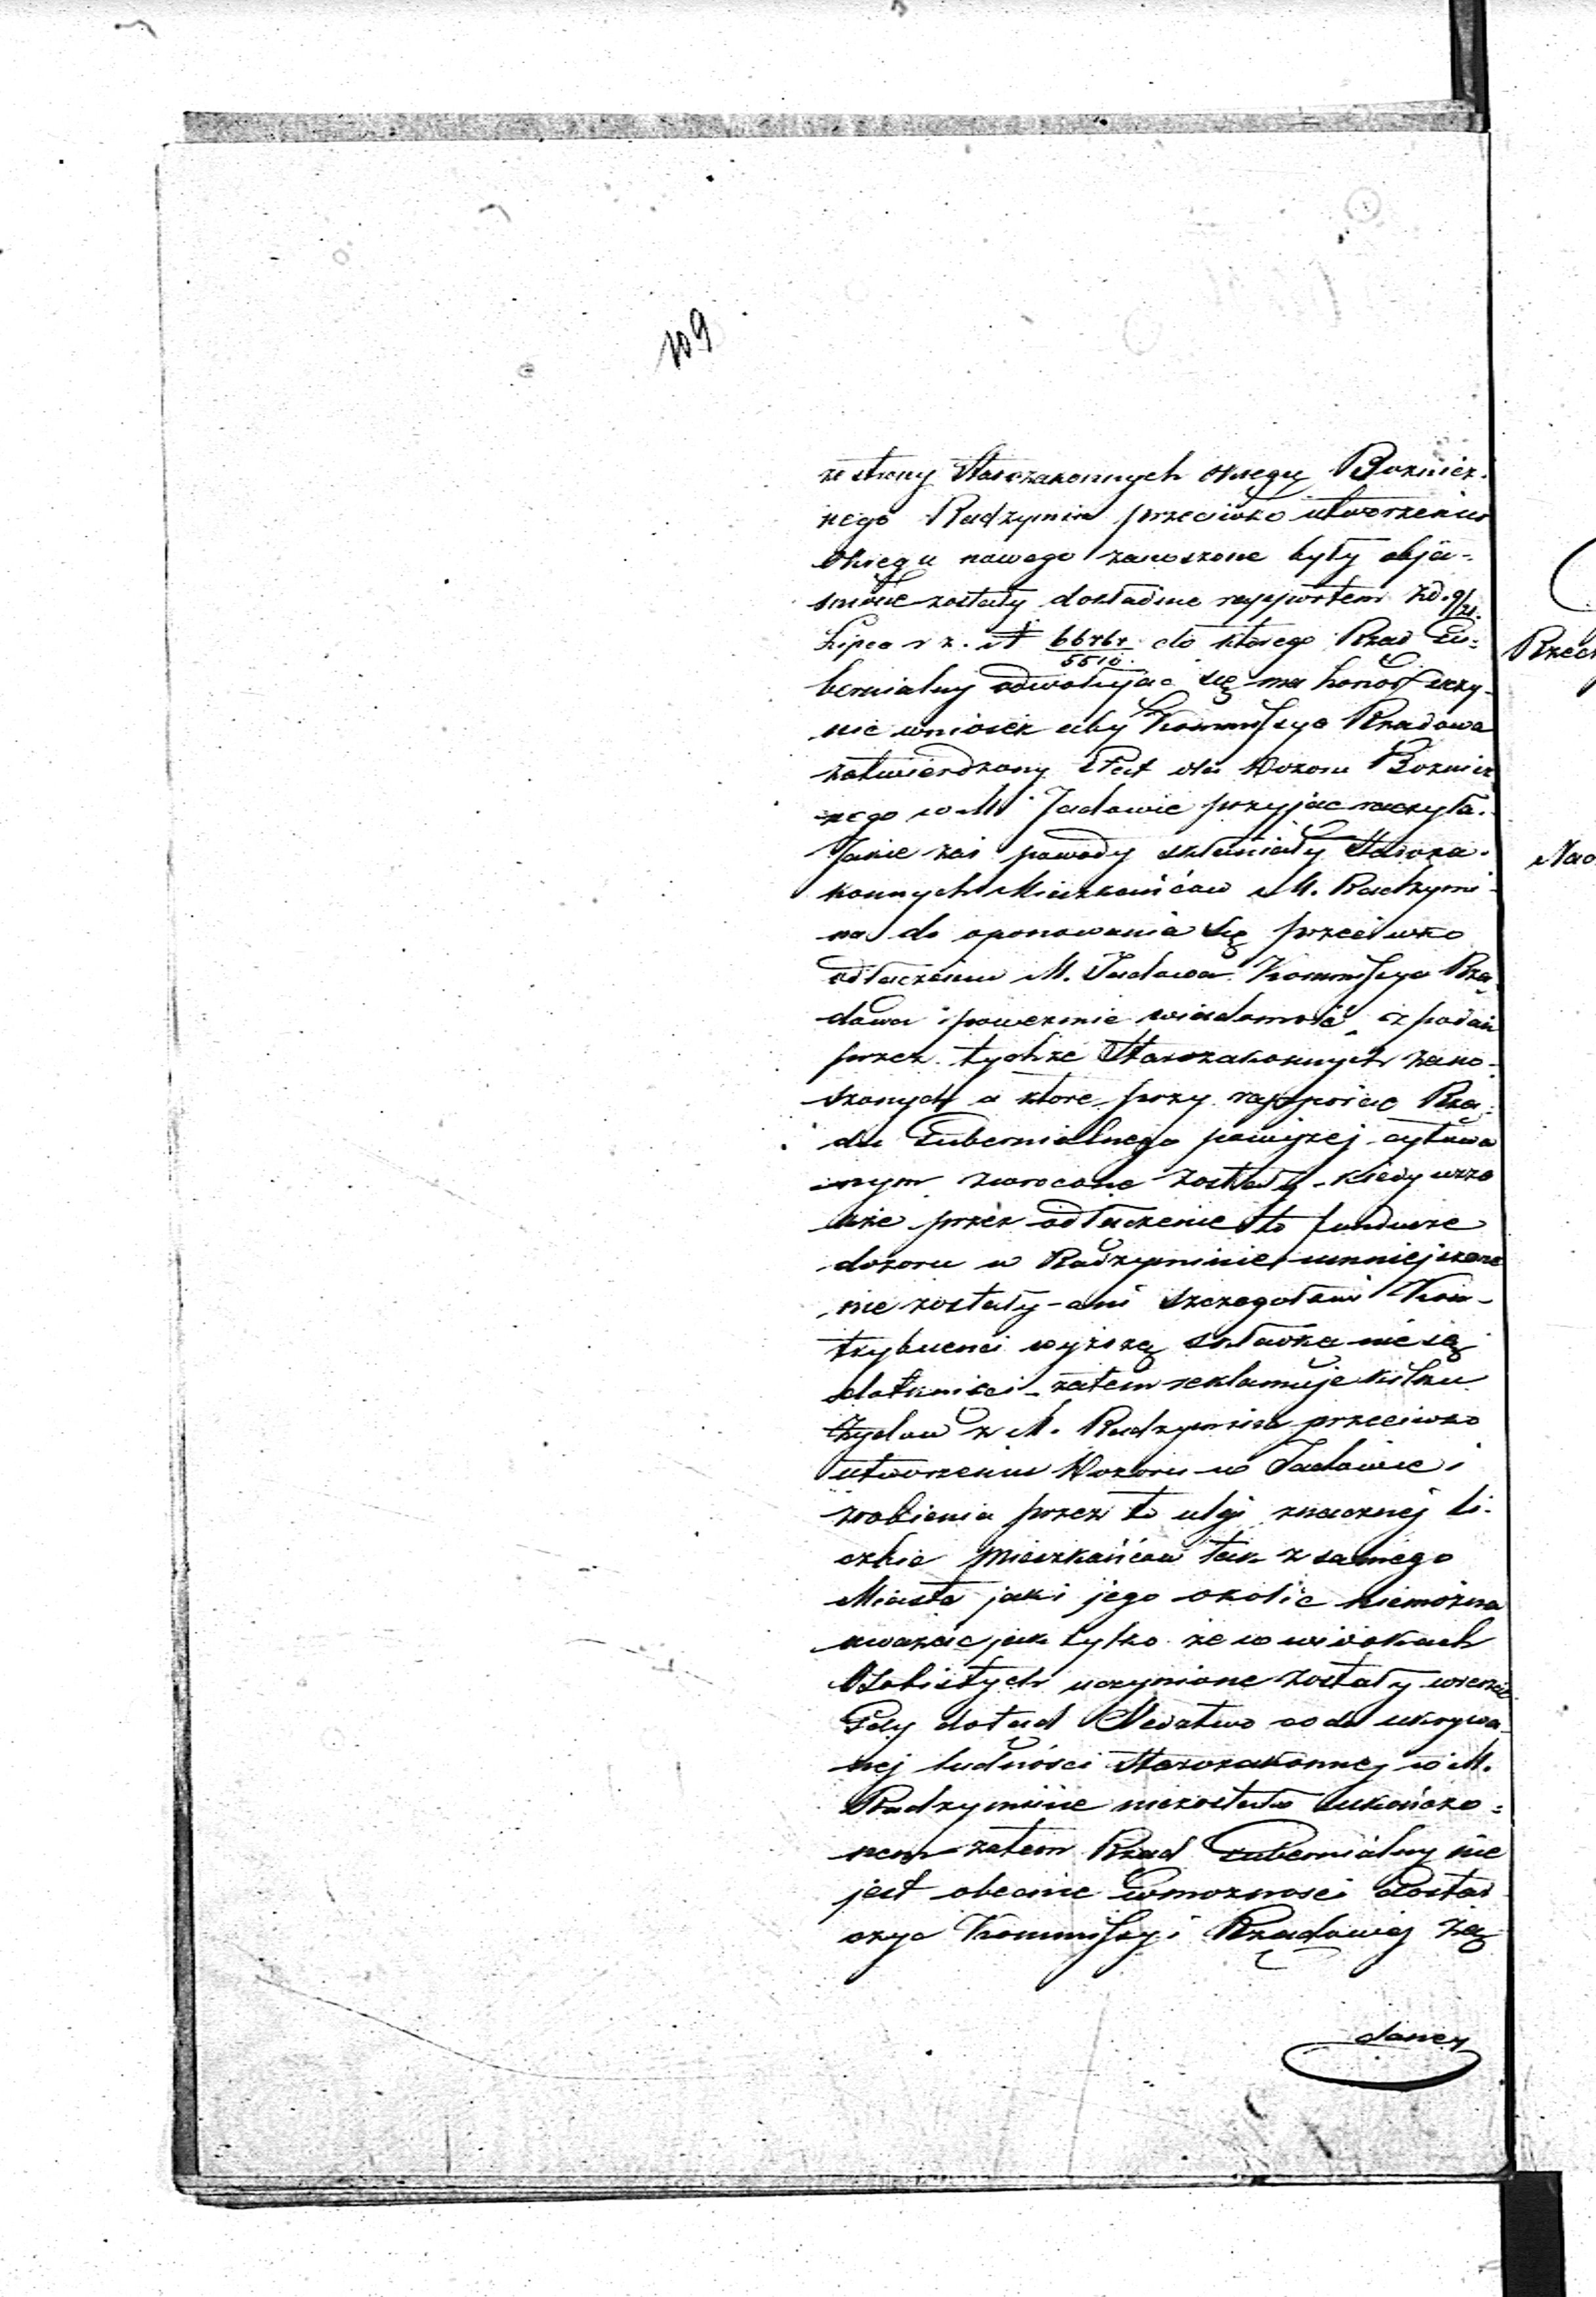 109
ze strony Starozakonnych okręgu Bożnicz.
nego Radzymin przeciwko utworzeniu
Okręgu nowego zanoszone były obja-
śnione zostały dokładnie rapportem z d. 9/21.
Lipca r z. N 66767/5510 do którego Rząd Gu=
bernialny odwołując się ma honor uczy-
nić wniosek aby Kommissya Rządowa
zatwierdzony Etat dla Dozoru Boznicz
nego w M. Jadowie przyjąc raczyła.
Jakie zaś powody skłaniały Staroza-
konnych Mieszkańców M. Radzymi-
na do oponowania się przeciwko
odłączeniu M. Jadowa. Kommissya Rzą-
dowa poweźmie wiadomość z podań
przez tychże Starozakonnych zano-
szonych a które przy rapporcie Rzą-
du Gubernialnego powyżej cytowa
nym zwrócone zostały - kiedy wszo
akże przez odłączenie to fundusze
dozoru w Radzyminie umniejszone
nie zostały - ani szczegołowi Kon-
trybuenci wyższą składką nie są
dotknięci - zatem reklamuje kilku
Żydów z M. Radzymina przeciwko
utworzeniu Dozoru w Jadowie i
zrobienia przez to ulgi znacznej li-
czbie Mieszkańców tak z samego
Miasta jak i jego okolic niemożna
uważać jak tylko że w widokach
Osobistych uczynione zostały wreszcie
Gdy dotąd Śledztwo co do ukrywa-
nej ludności Starozakonnej w M.
Radzyminie niezostało ukończo=
nem zatem Rząd Gubernialny nie
jest obecnie w możności dostar
czyć Kommissyi Rządowej żą
danej
Rzecz